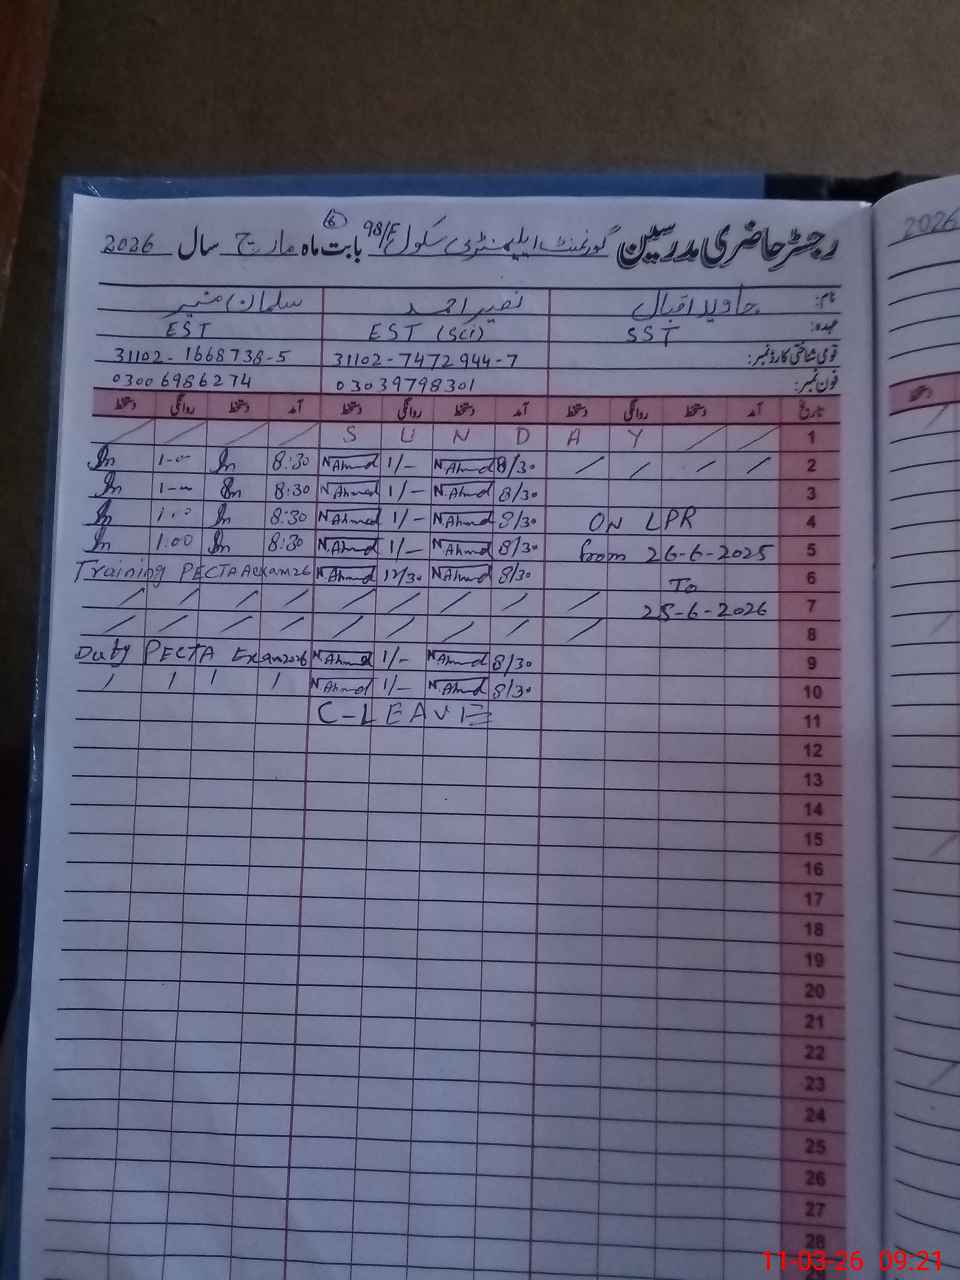 رجسٹر حاضری مدرسین گورنمنٹ ایلیمنٹری سکول 98/F بابت ماه مارچ سال 2026
2026
نام: جاوید اقبال نصیر احمد سلمان منیر
عہدہ: SST EST (Sci) EST
قومی شناختی کارڈ نمبر: 31102-7472944-7 31102-1668738-5
فون نمبر: 03039798301 03006986274
تاریخ آمد دستخط روانگی دستخط آمد دستخط روانگی دستخط آمد دستخط روانگی دستخط
S U N D A Y 1
1-00 8:30 N.Ahmed 1/- N.Ahmed 8/30 2
1-00 8:30 N.Ahmed 1/- N.Ahmed 8/30 3
1.00 8:30 N.Ahmed 1/- N.Ahmed 8/30 ON LPR 4
1.00 8:30 N.Ahmed 1/- N.Ahmed 8/30 from 26-6-2025 5
Training PECTA N.Ahmed 12/30 N.Ahmed 8/30 To 6
25-6-2026 7
8
Duty PECTA Exam 2026 N.Ahmed 1/- N.Ahmed 8/30 9
N.Ahmed 1/- N.Ahmed 8/30 10
C-LEAVE 11
12
13
14
15
16
17
18
19
20
21
22
23
24
25
26
27
28
11-03-26 09:21